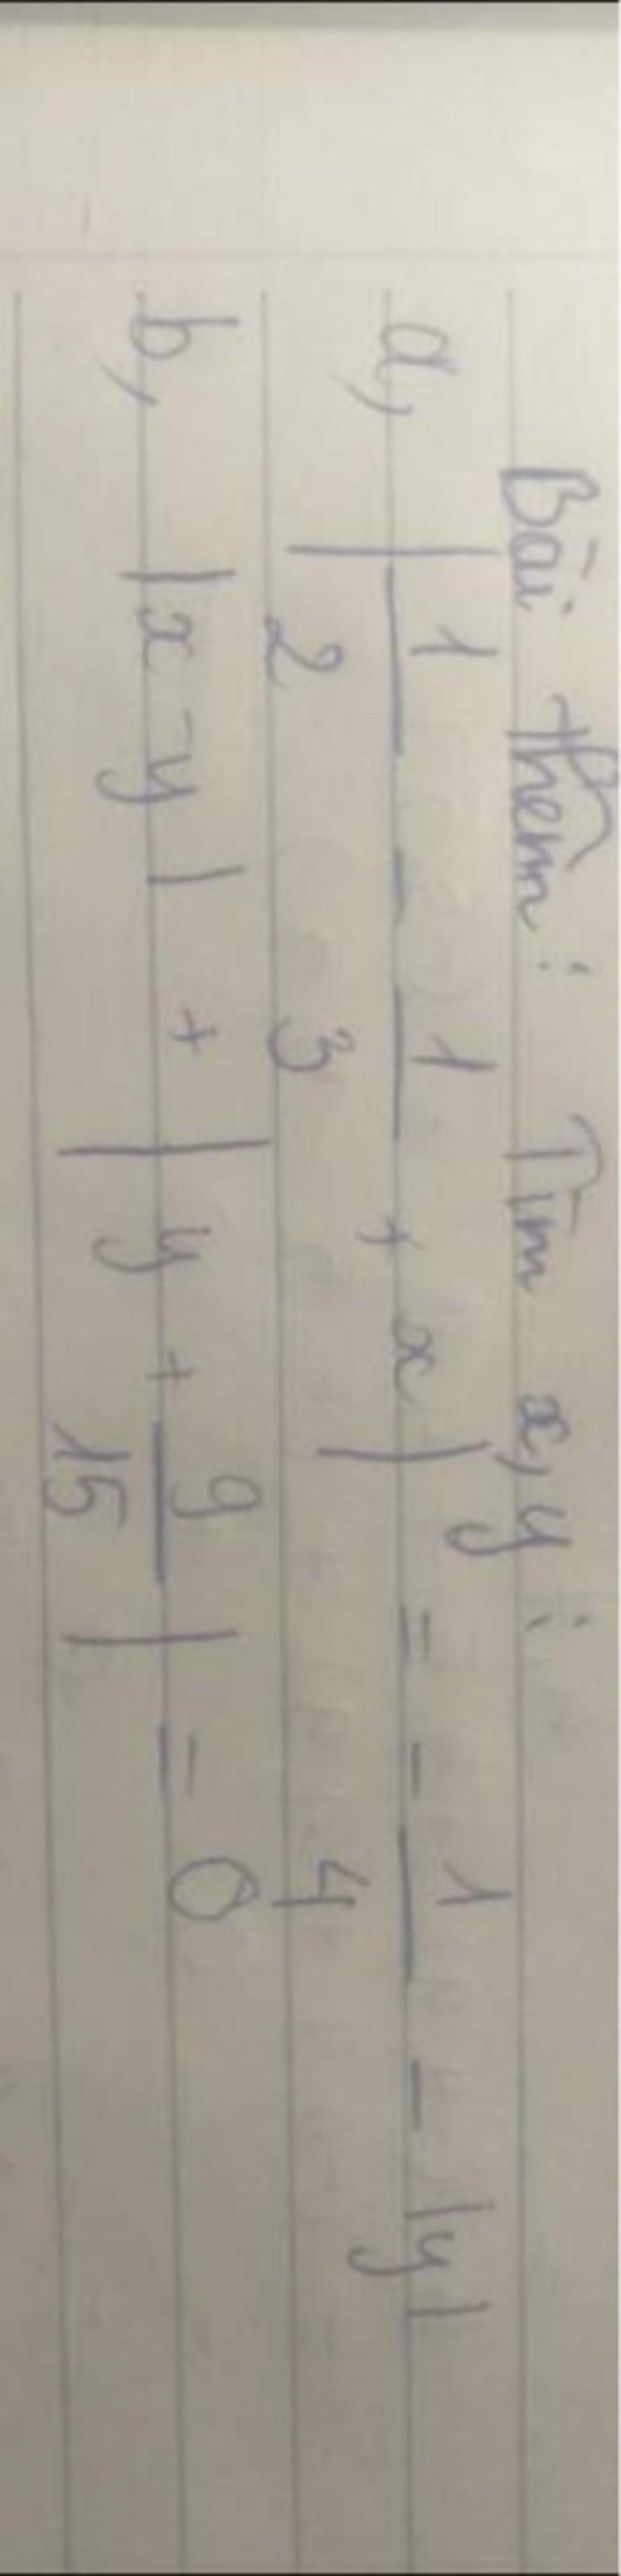 Bài thêm: Tìm x, y:
a, |1/2 - 1/3 + x| y = - 1/4 - |y|
b, |x - y| + |y + 9/15| = 0